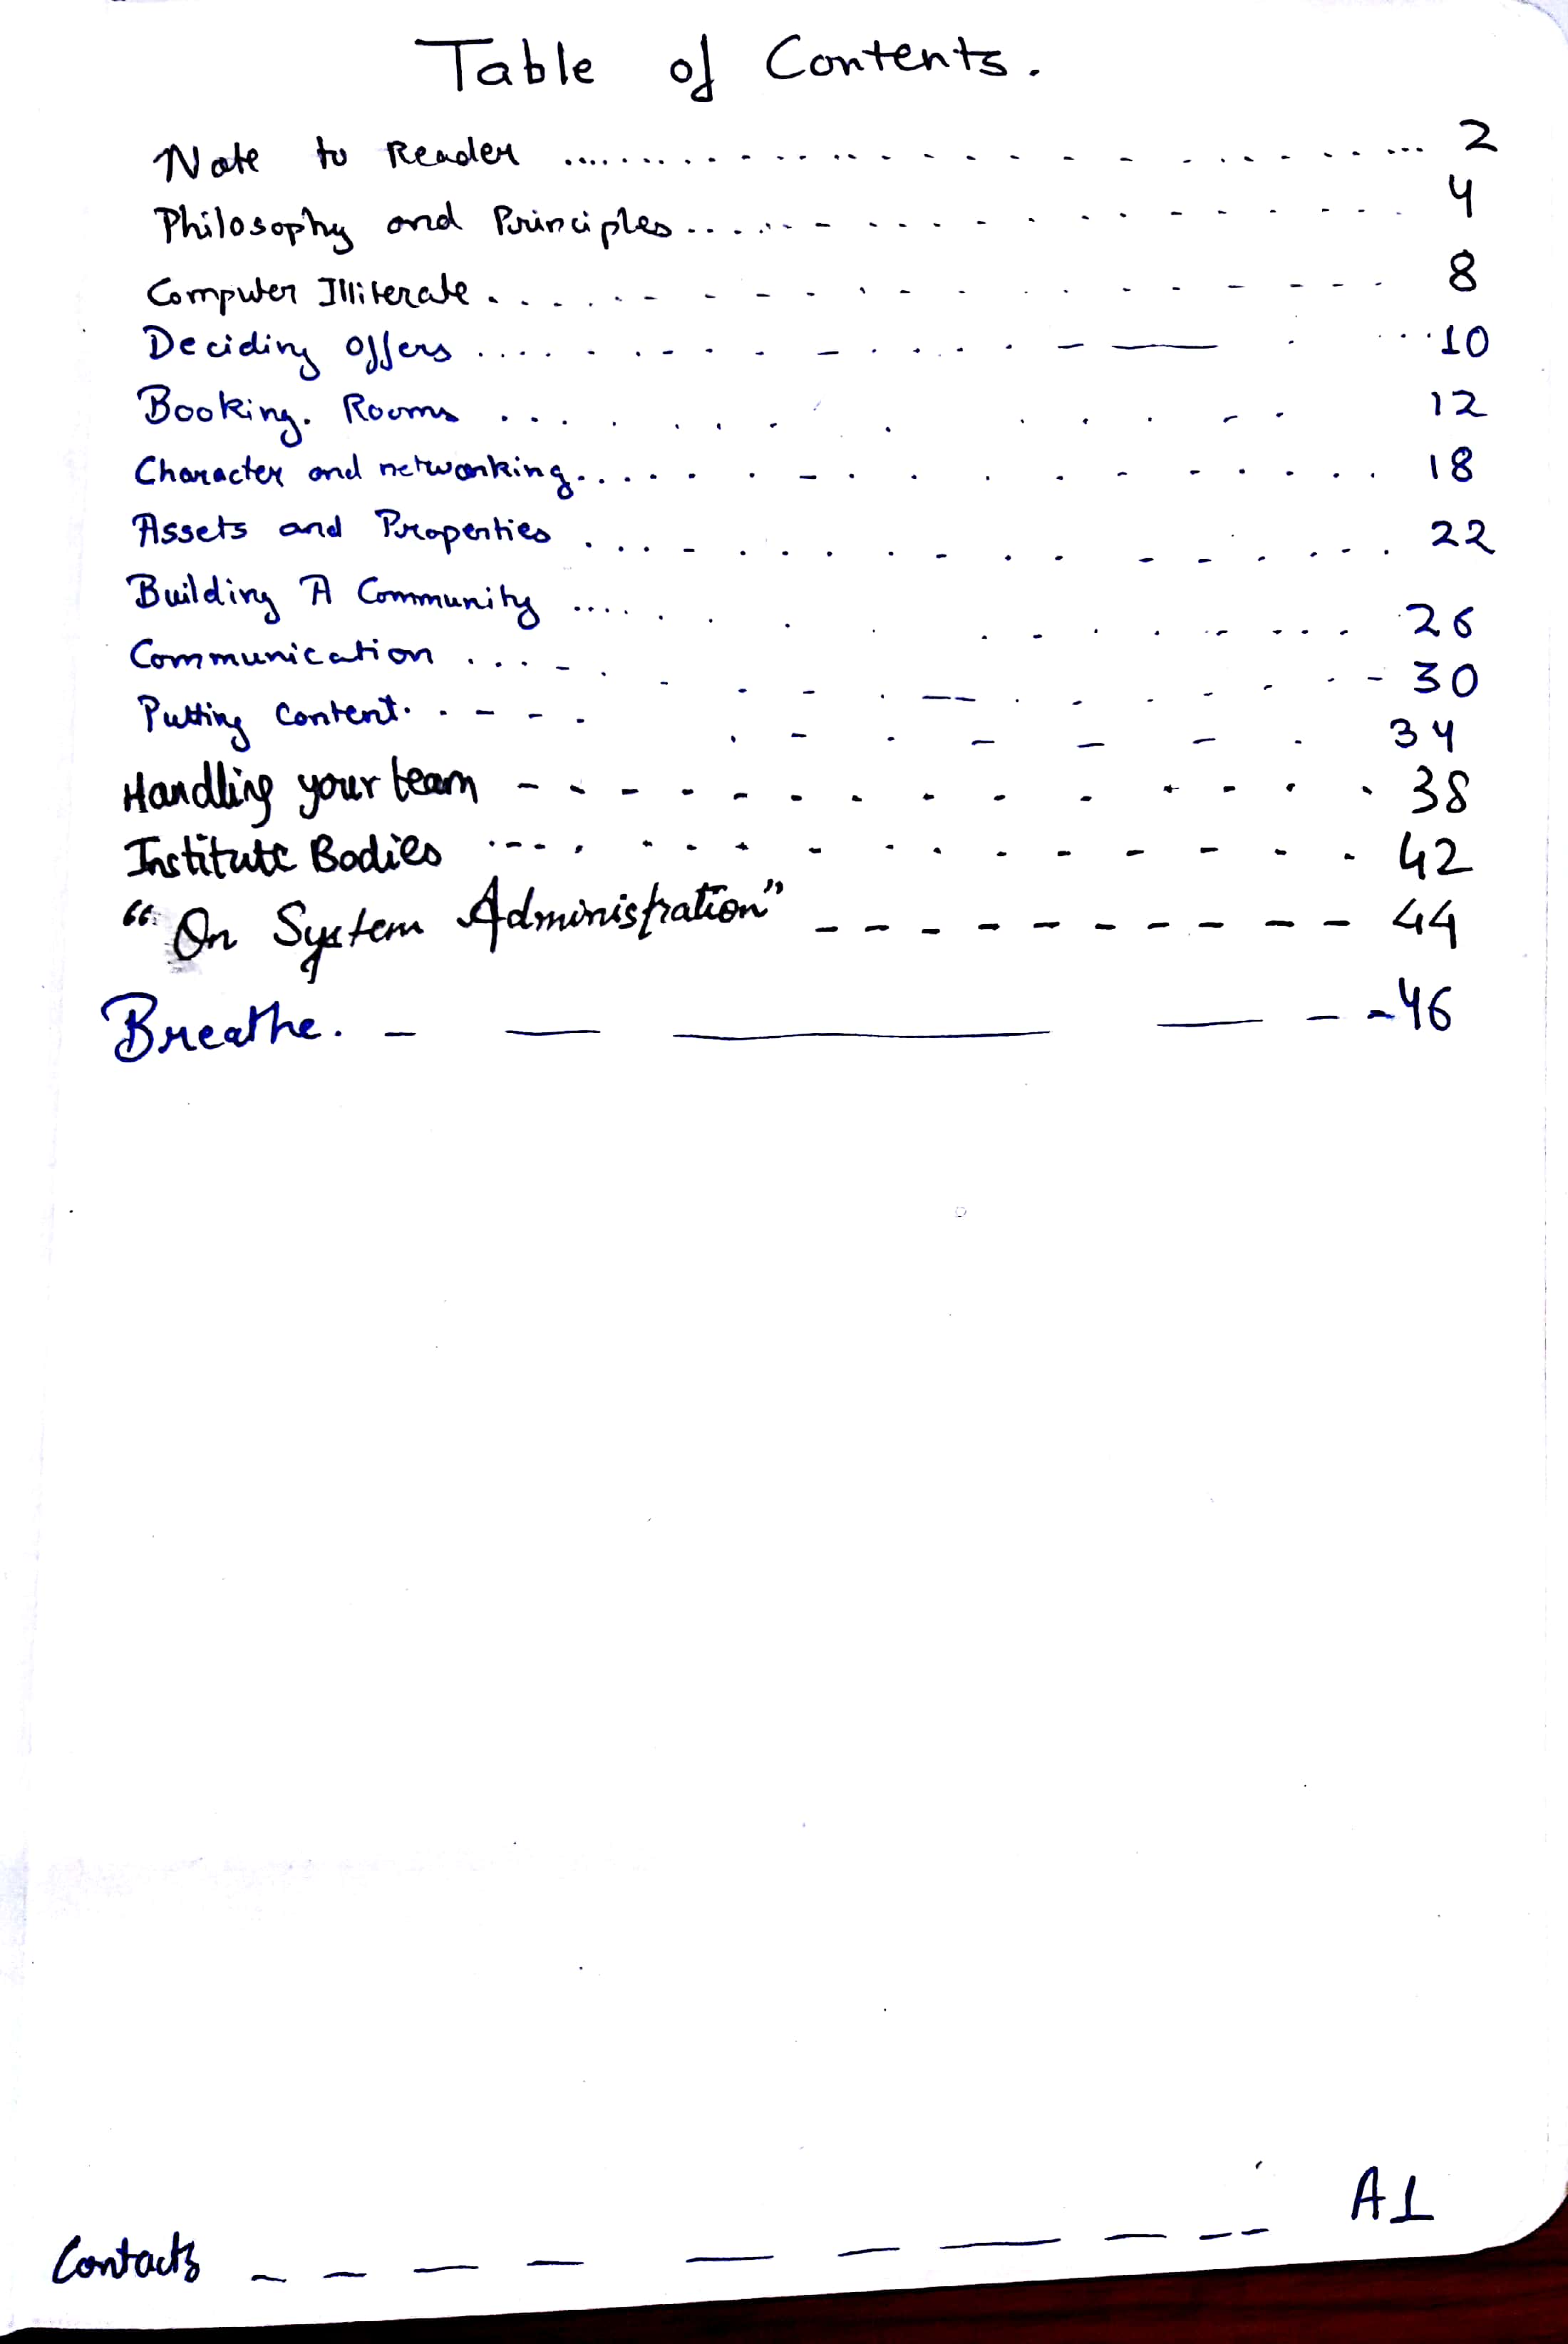 Table of Contents.
Note to Reader .................... 2
Philosophy and Principles .................... 4
Computer Illiterate .................... 8
Deciding Offers .................... 10
Booking. Rooms .................... 12
Character and networking .................... 18
Assets and Properties .................... 22
Building A Community .................... 26
Communication .................... 30
Putting Content .................... 34
Handling your team - - - - - - - - - - 38
Institute Bodies - - - - - - - - - - 42
“On System Administration” - - - - - - - - - - 44
Breathe. - — — — - - 46
Contacts - - - - — - — - - - A1